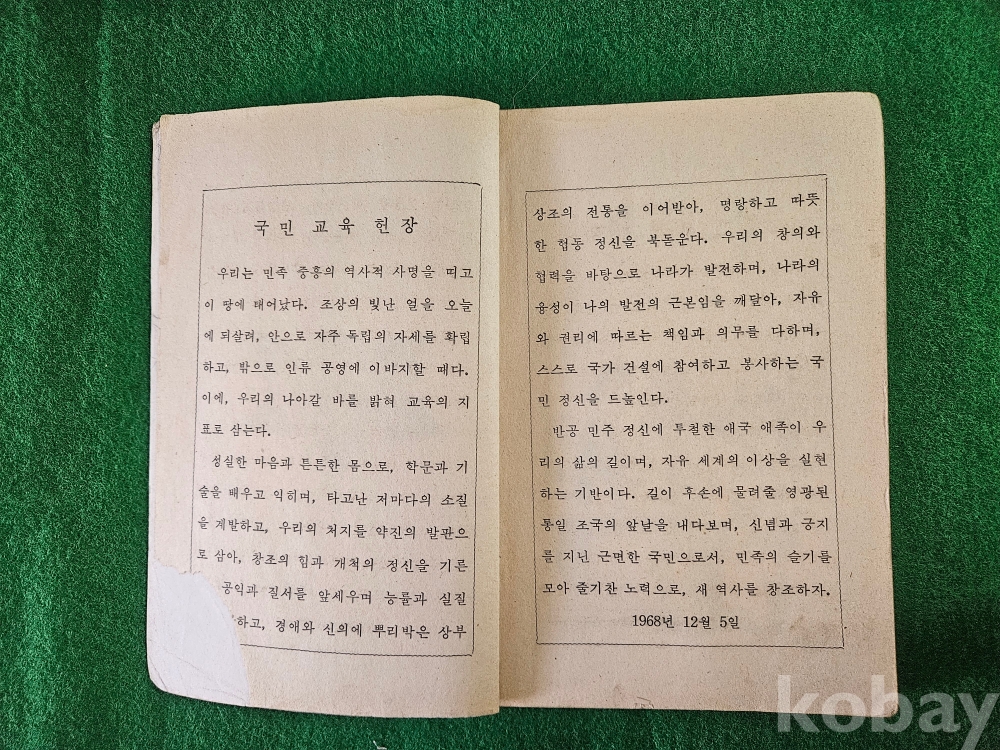 국민 교육 헌장
우리는 민족 중흥의 역사적 사명을 띠고
이 땅에 태어났다. 조상의 빛난 얼을 오늘
에 되살려, 안으로 자주 독립의 자세를 확립
하고, 밖으로 인류 공영에 이바지할 때다.
이에, 우리의 나아갈 바를 밝혀 교육의 지
표로 삼는다.
성실한 마음과 튼튼한 몸으로, 학문과 기
술을 배우고 익히며, 타고난 저마다의 소질
을 계발하고, 우리의 처지를 약진의 발판으
로 삼아, 창조의 힘과 개척의 정신을 기른
공익과 질서를 앞세우며 능률과 실질
하고, 경애와 신의에 뿌리박은 상부
상조의 전통을 이어받아, 명랑하고 따뜻
한 협동 정신을 북돋운다. 우리의 창의와
협력을 바탕으로 나라가 발전하며, 나라의
융성이 나의 발전의 근본임을 깨달아, 자유
와 권리에 따르는 책임과 의무를 다하며,
스스로 국가 건설에 참여하고 봉사하는 국
민 정신을 드높인다.
반공 민주 정신에 투철한 애국 애족이 우
리의 삶의 길이며, 자유 세계의 이상을 실현
하는 기반이다. 길이 후손에 물려줄 영광된
통일 조국의 앞날을 내다보며, 신념과 긍지
를 지닌 근면한 국민으로서, 민족의 슬기를
모아 줄기찬 노력으로, 새 역사를 창조하자.
1968년 12월 5일
kobay